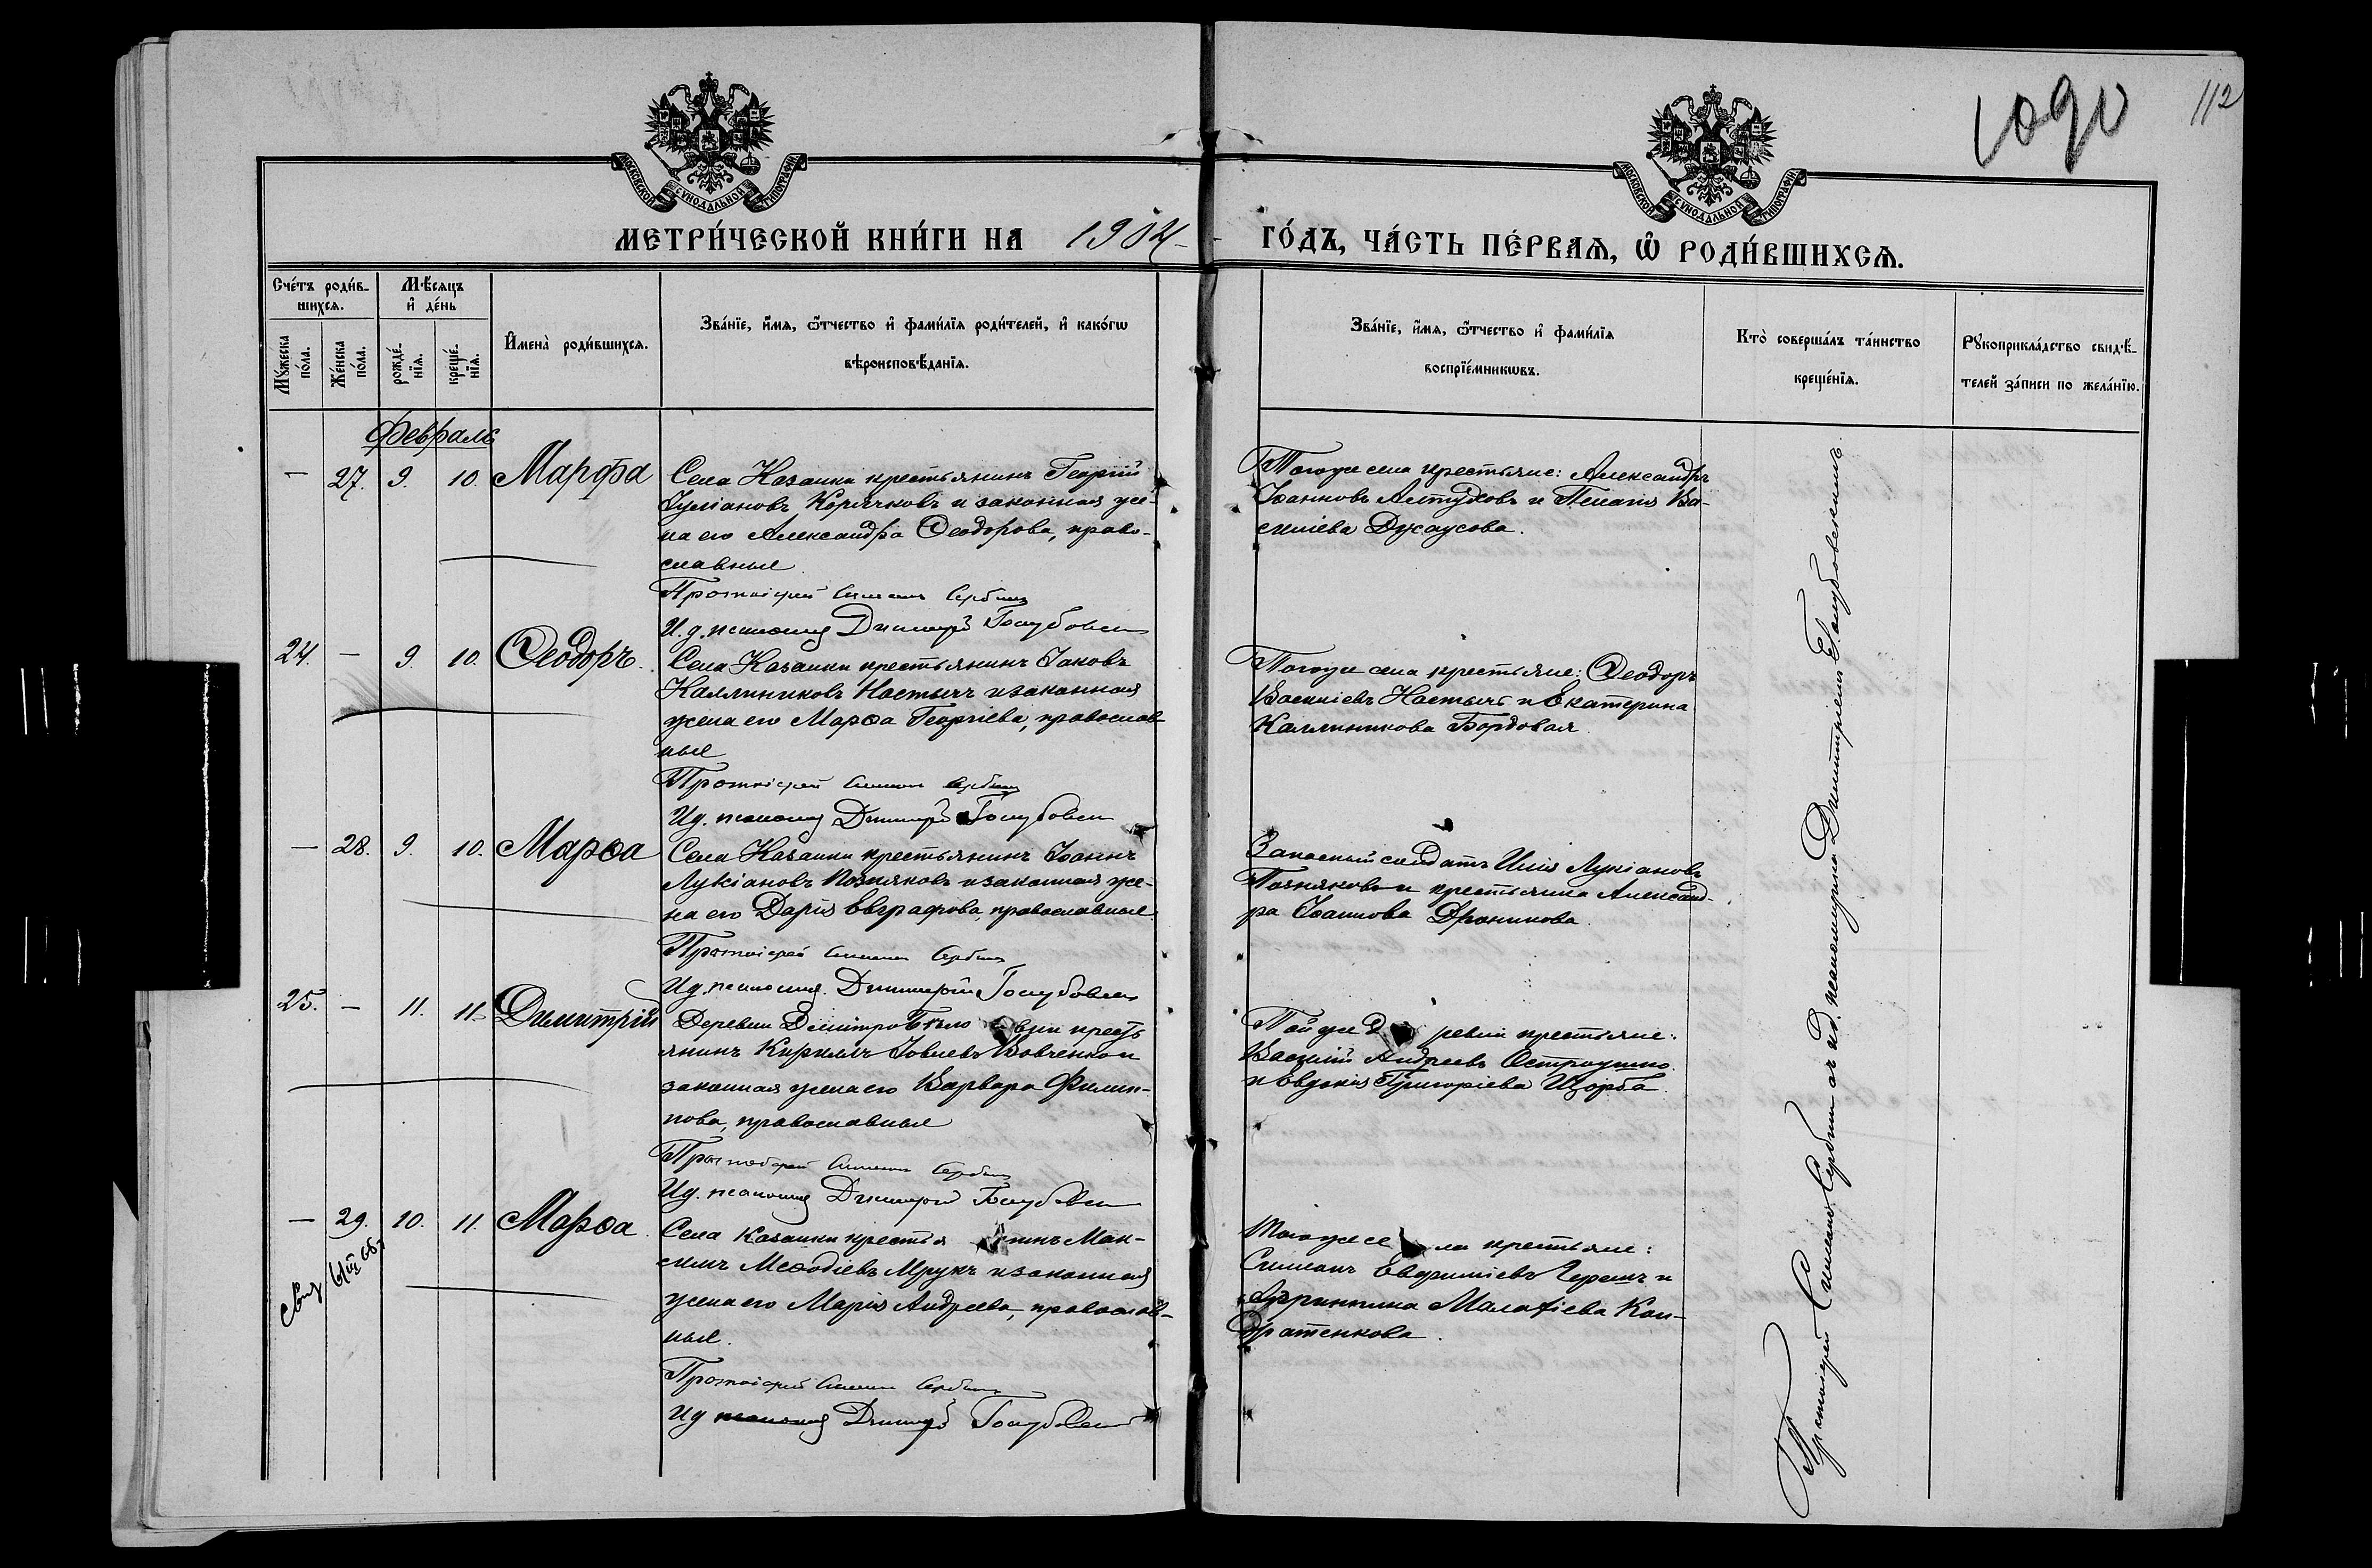 1090
112
МОСКОВСКОЙ СѴНОДАЛЬНОЙ ТИПОГРАФІИ
МОСКОВСКОЙ СѴНОДАЛЬНОЙ ТИПОГРАФІИ
МЕТРИ́ЧЕСКОЙ КНИ́ГИ НА 1904
ГО́ДЪ, ЧА́СТЬ ПЕ́РВАѦ, Ѡ҆ РОДИ́ВШИХСѦ.
Сче́тъ роди́в-
шихсѧ.
Мѣ́сѧцъ
и҆ де́нь
Мꙋ́жеска
по́ла.
Же́нска
по́ла.
рожде́-
нїѧ.
креще́-
нїѧ.
И҆мена̀ роди́вшихсѧ.
Зва́нїе, и҆́мѧ, ѻ҆́тчество и҆ фами́лїѧ роди́телей, и҆ како́гѡ
вѣроисповѣ́данїѧ.
Зва́нїе, и҆́мѧ, ѻ҆́тчество и҆ фами́лїѧ
воспрїе́мникѡвъ.
Кто̀ соверша́лъ та́инство
креще́нїѧ.
Рꙋкоприкла́дство свидѣ́-
телей за́писи по жела́нїю.
Февраль
— 27. 9. 10. Марфа
Села Казанки крестьянинъ Георгій
Іуліановъ Корячковъ и законная же-
на его Александра Ѳеодорова, право-
славные
Протоіерей Симеонъ Сербинъ
И. д. псаломщ Димитрій Голубовск
Тогоже села крестьяне: Александръ
Іоанновъ Алтуховъ и Пелагія Ва-
силіева Джаусова.
24. — 9. 10. Ѳеодоръ.
Села Казанки крестьянинъ Іаковъ
Каллиниковъ Настычъ и законная
жена его Марѳа Георгіева, православ
ные
Протоіерей Симеонъ Сербинъ
И д. псаломщ Димитрій Голубовск
Тогоже села крестьяне: Ѳеодоръ
Василіевъ Настычъ и Екатерина
Каллиникова Бордовая
— 28. 9. 10. Марѳа
Села Казанки крестьянинъ Іоаннъ
Лукіановъ Позняковъ и законная же-
на его Дарія Евграфова, православные
Протоіерей Симеонъ Сербинъ
И д. псаломщ. Димитрій Голубовск
Запасный солдатъ Илія Лукіановъ
Позняковъ и крестьянка Александ-
ра Іоаннова Дроникова.
25. — 11. 11. Димитрій
Деревни Дмитро Бѣло вки кресть
янинъ Кириллъ Іовлевъ Вовченко и
законная жена его Варвара Филип-
пова, православные
Протоіерей Симеонъ Сербинъ
И д. псаломщ Димитрій Голубовск
Той же д ревни крестьяне:
Василій Андреевъ Остроушко
и Евдокія Григоріева Щорба.
— 29. 10. 11. Марѳа
Села Казанки крестья нинъ Мак-
симъ Меѳодіевъ Мрукъ и законная
жена его Марія Андреева, православ-
ные.
Протоіерей Симеонъ Сербинъ
И д псаломщ Димитрій Голубовск
Тогоже се ла крестьяне:
Симеонъ Евфиміевъ Черешъ и
Агриппина Малахіева Кон-
дратенкова.
Протоіерей Симеонъ Сербинъ съ и.д. псаломщика Димитріемъ Голубовскимъ.